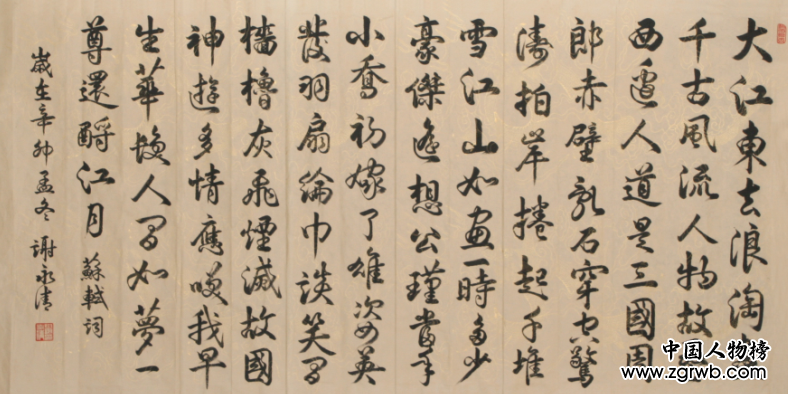 大江東去浪淘盡
千古風流人物故壘
西邊人道是三國周
郎赤壁亂石穿空驚
濤拍岸捲起千堆
雪江山如畫一時多少
豪傑遙想公瑾當年
小喬初嫁了雄姿英
發羽扇綸巾談笑間
檣櫓灰飛煙滅故國
神遊多情應笑我早
生華髮人間如夢一
尊還酹江月 蘇軾詞
歲在辛卯孟冬 謝永清
中国人物榜
www.zgrwb.com